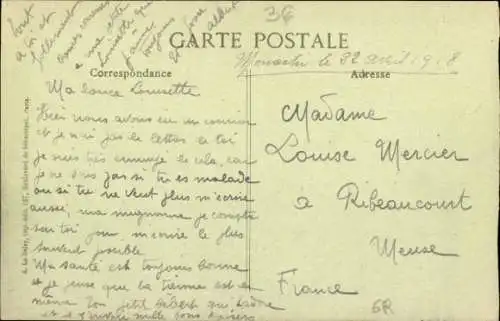 Tout
à toi et
follement
à ma chère
Louisette que
j'aime
toujours
Et
3€
CARTE POSTALE
Monastir le 22 avril 1918
Correspondance
Adresse
Ma douce Louisette
Hier nous avons eu un courrier
et je n'ai pas de lettres de toi
je suis très ennuyé de cela, car
je ne sais pas si tu es malade
ou si tu ne veut plus m'écrire
aussi, ma mignonne je compte
sur toi pour m'écrire le plus
souvent possible
Ma santé est toujours bonne
et je pense que la tienne est de
même Ton petit Robert qui t'adore
et t'envoie mille bons baisers
Madame
Louise Mercier
à Ribeaucourt
Meuse
France
6R